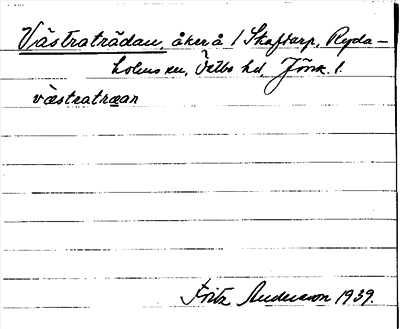 Västraträdan, åker å 1 Skaftarp, Ryda-
holms sn, Östbo hd, Jönk. l.
västratræan
Fritz Andersson 1939.